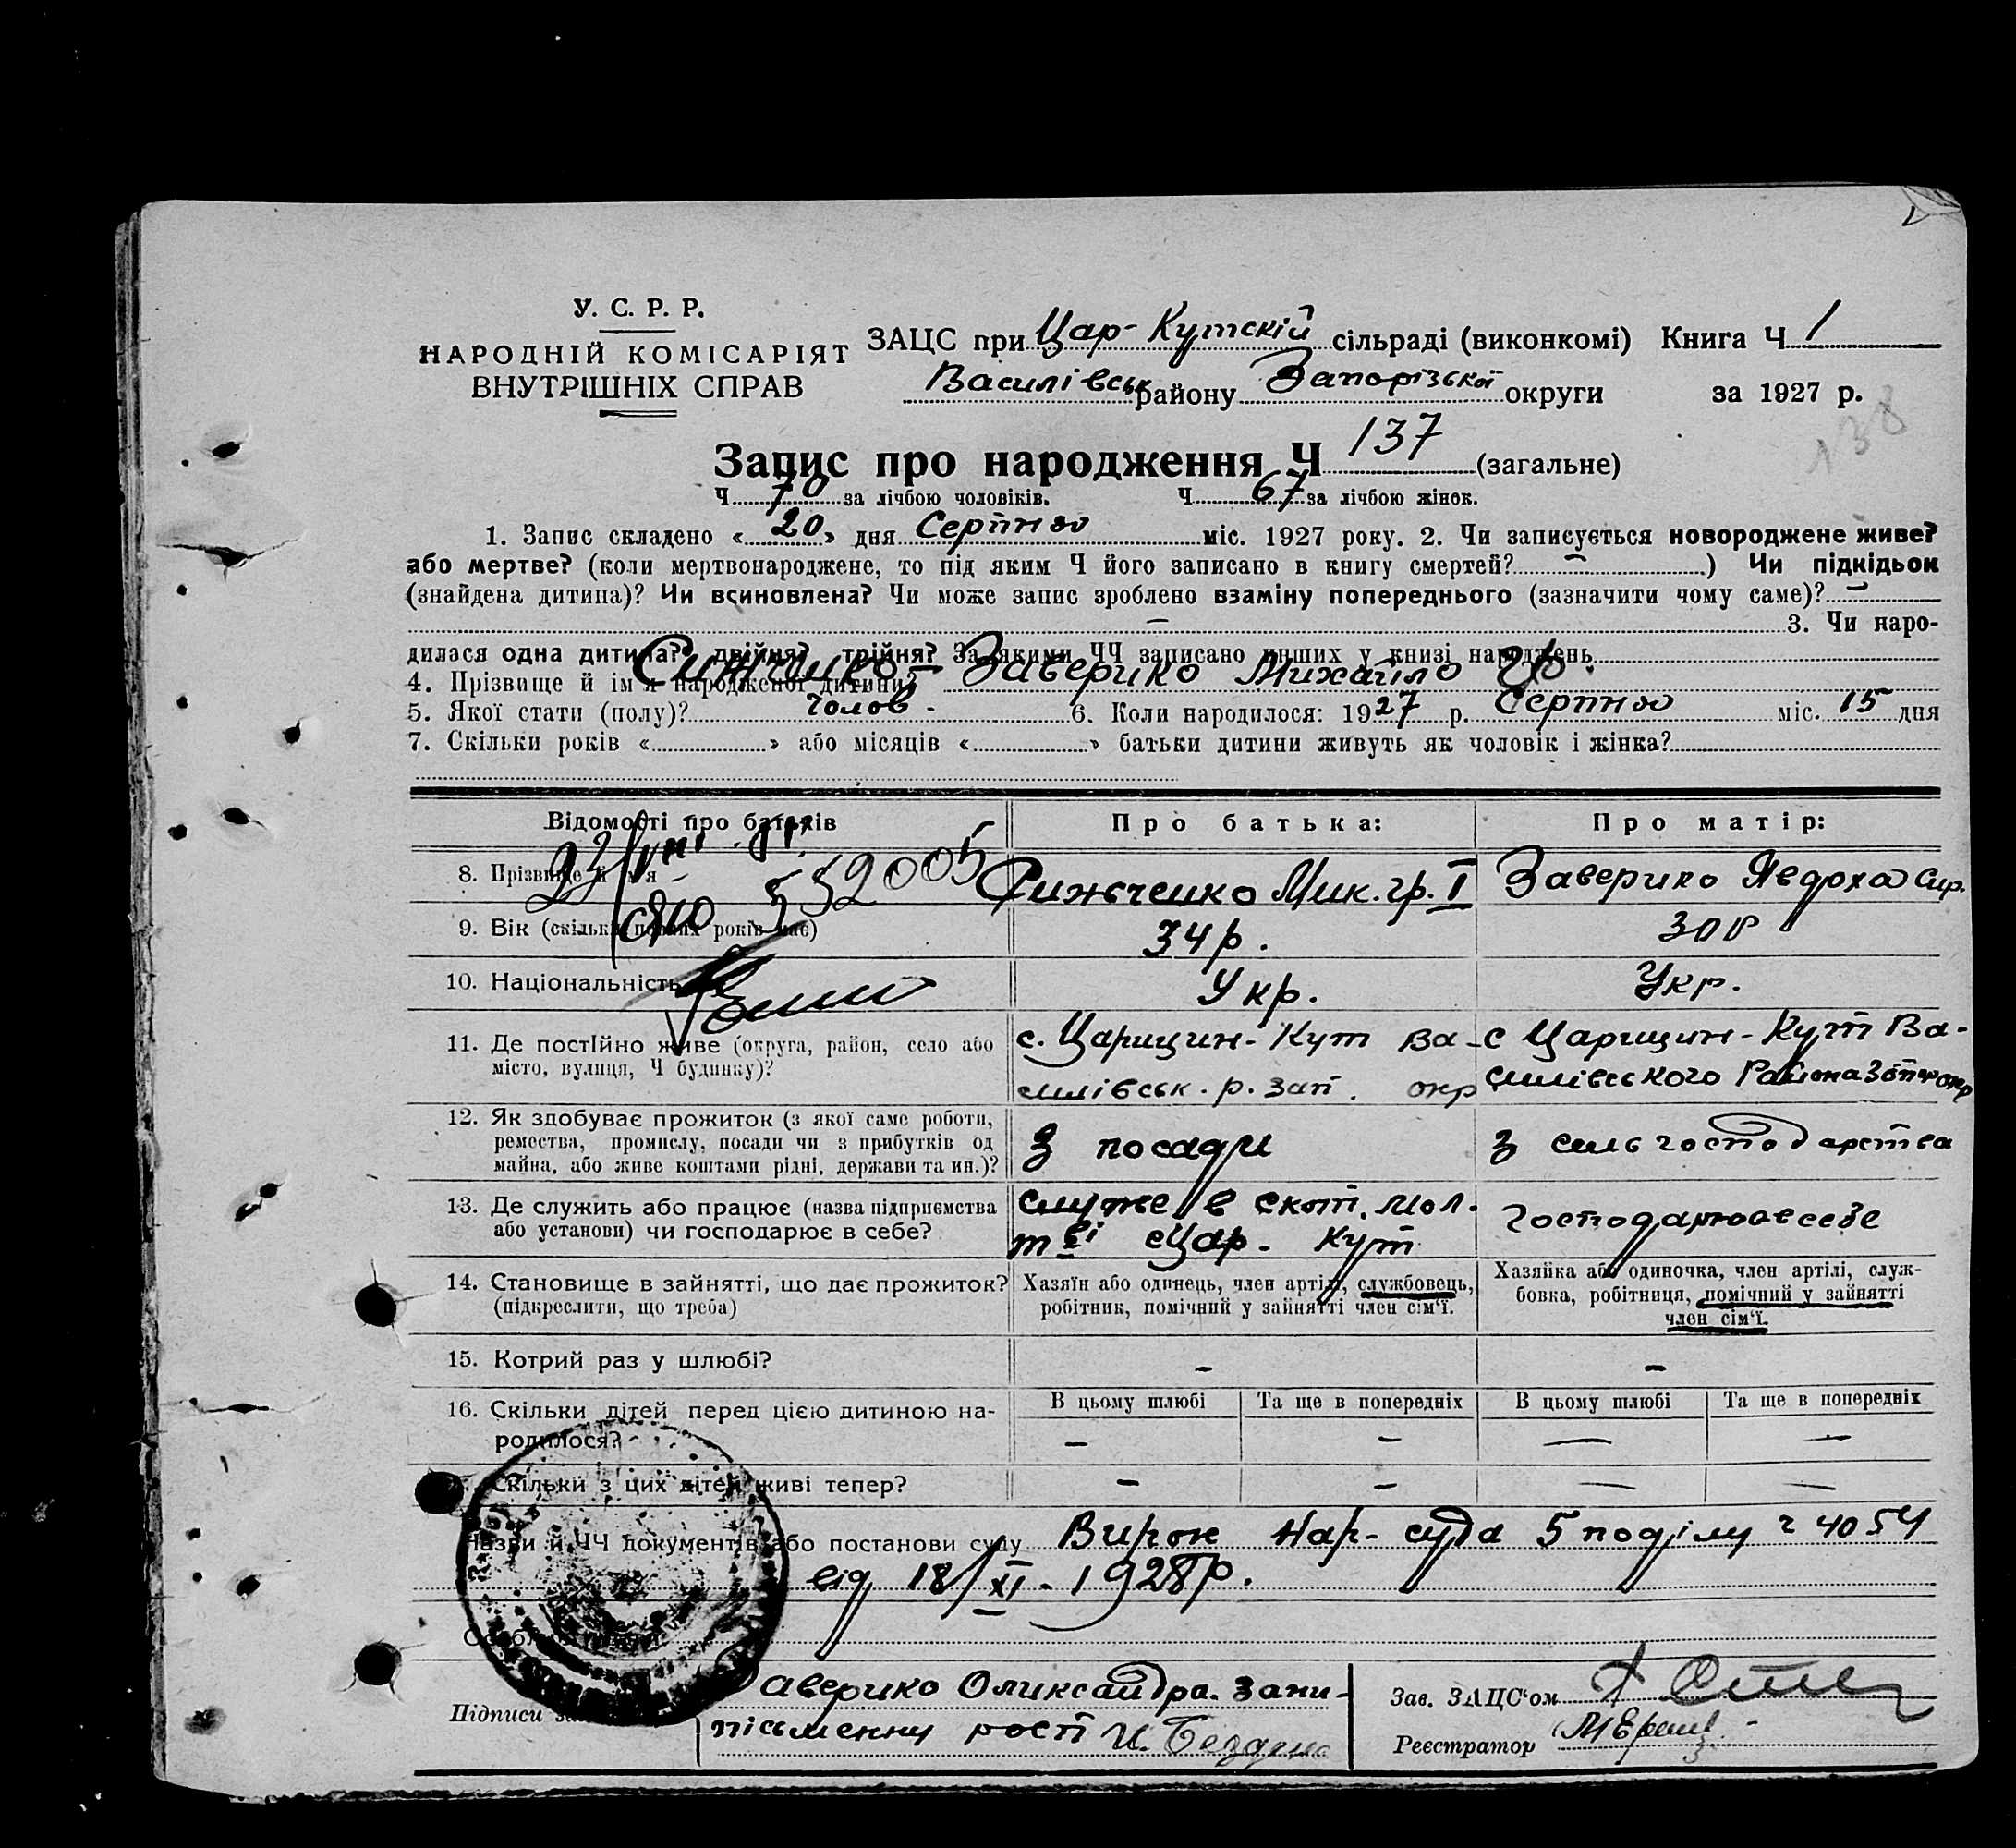 У. С. Р. Р.
НАРОДНІЙ КОМІСАРІЯТ
ВНУТРІШНІХ СПРАВ
ЗАЦС при Цар-Кутскій сільраді (виконкомі) Книга Ч 1
Василівськ району Запорізької округи за 1927 р.
138
Запис про народження Ч 137 (загальне)
Ч 70 за лічбою чоловіків. Ч 67 за лічбою жінок.
1. Запис складено « 20 » дня Серпня міс. 1927 року. 2. Чи записується новороджене живе?
або мертве? (коли мертвонароджене, то під яким Ч його записано в книгу смертей? – ) Чи підкідьок
(знайдена дитина)? Чи всиновлена? Чи може запис зроблено взаміну попереднього (зазначити чому саме)? –
– 3. Чи наро-
дилася одна дитина? двійня? трійня? За якими ЧЧ записано инших у книзі народжень
4. Прізвище й ім'я народженої дитини? Заверико Михайло
5. Якої стати (полу)? Голов - 6. Коли народилося: 1927 р. Серпня міс. 15 дня
7. Скільки років « » або місяців « » батьки дитини живуть як чоловік і жінка?
Відомості про батьків
Про батька:
Про матір:
8. Прізвище й ім'я
Мик. гр. I
Заверико Явдоха
552005
9. Вік (скільки повних років має)
34 р.
30 р
10. Національність
Укр.
Укр.
11. Де постійно живе (округа, район, село або
місто, вулиця, Ч будинку)?
с. Царицин-Кут Ва-
силівськ. р. Зап. окр
с Царицин-Кут Ва-
силівського Района окр
12. Як здобуває прожиток (з якої саме роботи,
ремества, промислу, посади чи з прибутків од
майна, або живе коштами рідні, держави та ин.)?
З посади
з сельгосподарства
13. Де служить або працює (назва підприємства
або установи) чи господарює в себе?
служе в скот. мол.
т ві Цар. Кут
Господарює в себе
14. Становище в зайнятті, що дає прожиток?
(підкреслити, що треба)
Хазяїн або одинець, член артілі, службовець,
робітник, помічний у зайнятті член сім'ї.
Хазяйка або одиночка, член артілі, служ-
бовка, робітниця, помічний у зайнятті
член сім'ї.
15. Котрий раз у шлюбі?
–
–
16. Скільки дітей перед цією дитиною на-
родилося?
В цьому шлюбі
Та ще в попередніх
В цьому шлюбі
Та ще в попередніх
– – – –
Скільки з цих дітей живі тепер?
– – – –
Назви й ЧЧ документів або постанови суду Вирок Нар- суда 5 поділу ч 4054
від 18/XI - 1928 р.
Підписи
Заверико Оликсандра. за ни-
письменну рост
Зав. ЗАЦС'ом
Реєстратор